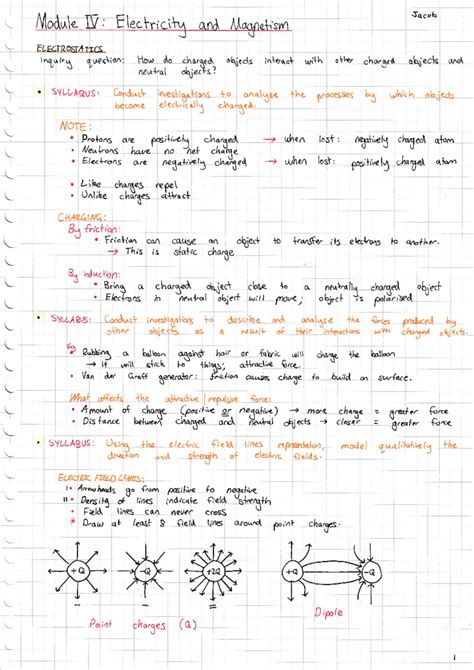 Jacob
Module IV: Electricity and Magnetism
ELECTROSTATICS
Inquiry question: How do charged objects interact with other charged objects and
neutral objects?
• SYLLABUS: Conduct investigations to analyse the processes by which objects
become electrically charged.
NOTE:
• Protons are positively charged → when lost: negatively charged atom
• Neutrons have no net charge
• Electrons are negatively charged → when lost: positively charged atom
• Like charges repel
• Unlike charges attract
CHARGING:
By friction:
• Friction can cause an object to transfer its electrons to another.
→ This is static charge
By induction:
• Bring a charged object close to a neutrally charged object
• Electrons in neutral object will move; object is polarised
• SYLLABUS: Conduct investigations to describe and analyse the forces produced by
other objects as a result of their interactions with charged objects.
Eg
• Rubbing a balloon against hair or fabric will charge the balloon
→ It will stick to things; attractive force.
• Van der Graff generator: friction causes charge to build on surface.
What affects the attractive/repulsive force:
• Amount of charge (positive or negative) → more charge = greater force
• Distance between charged and neutral objects → closer = greater force
• SYLLABUS: Using the electric field lines representation, model qualitatively the
direction and strength of electric fields.
ELECTRIC FIELD LINES:
• Arrowheads go from positive to negative
• Density of lines indicate field strength
• Field lines can never cross
* Draw at least 8 field lines around point charges.
+Q -Q +2Q +Q -Q
Point charges (Q)
Dipole
1